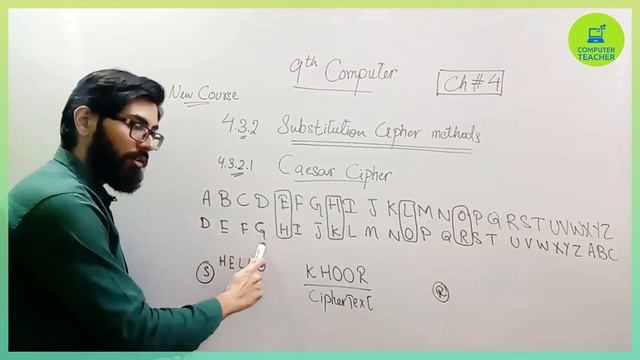 COMPUTER
TEACHER
9th Computer
Ch # 4
New Course
4.3.2 Substitution Cipher methods
4.3.2.1 Caesar Cipher
A B C D E F G H I J K L M N O P Q R S T U V W X Y Z
D E F G H I J K L M N O P Q R S T U V W X Y Z A B C
S HELLO KHOOR R
CipherText